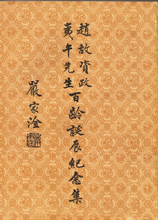 趙故資政
夷午先生百齡誕辰紀念集
嚴家淦